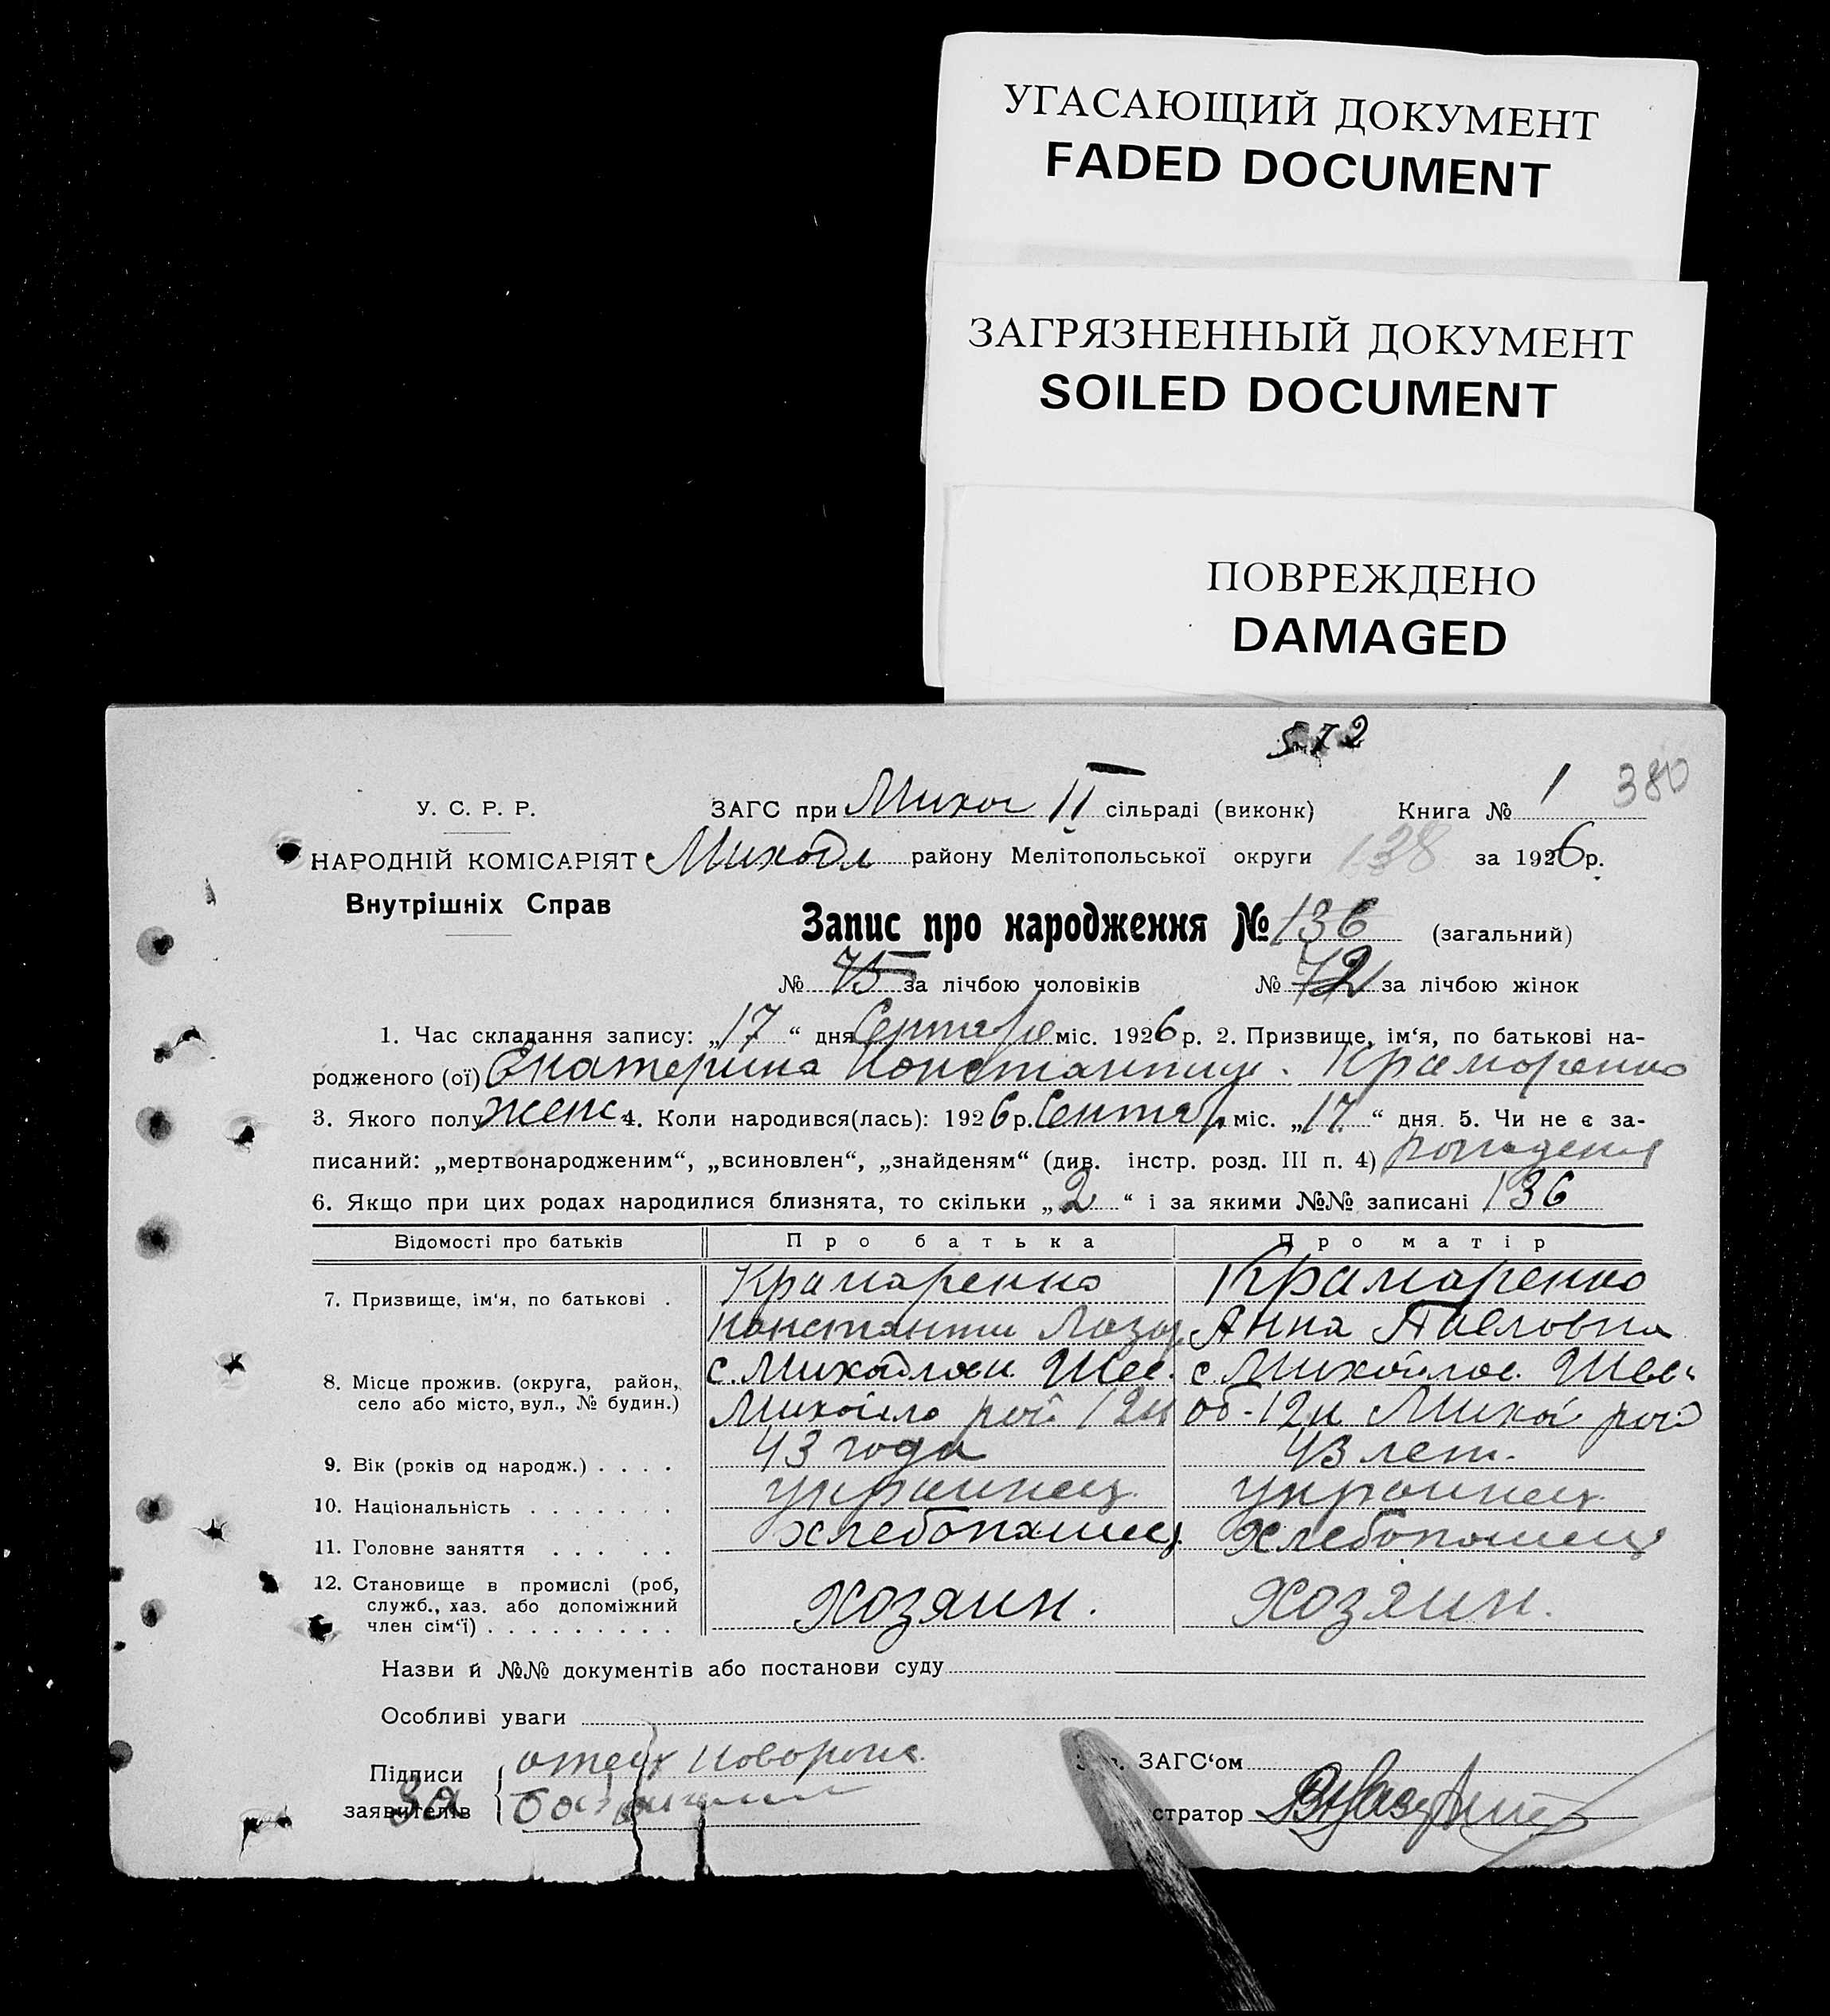 УГАСАЮЩИЙ ДОКУМЕНТ
FADED DOCUMENT
ЗАГРЯЗНЕННЫЙ ДОКУМЕНТ
SOILED DOCUMENT
ПОВРЕЖДЕНО
DAMAGED
572
380
У. С. Р. Р. ЗАГС при II сільраді (виконк) Книга № 1
НАРОДНІЙ КОМІСАРІЯТ району Мелітопольської округи 138 за 1926 р.
Внутрішніх Справ
Запис про народження № 136 (загальний)
№ 75 за лічбою чоловіків № 72 за лічбою жінок
1. Час складання запису: „17“ дня Сентября міс. 1926 р. 2. Призвище, ім‘я, по батькові на-
родженого (ої) Екатерина Крамаренко
3. Якого полу женс. 4. Коли народився(лась): 1926 р. Сентяб міс. „17“ дня. 5. Чи не є за-
писаний: „мертвонародженим“, „всиновлен“, „знайденям“ (див. інстр. розд. III п. 4) рождения
6. Якщо при цих родах народилися близнята, то скільки „2“ і за якими №№ записані 136
Відомості про батьків Про батька Про матір
7. Призвище, ім‘я, по батькові . Крамаренко Крамаренко
Константи Лазар Анна Павловна
8. Місце прожив. (округа, район, с. Михайловк Шев. с. Михайлов. Шев
село або місто, вул., № будин.)
9. Вік (років од народж.) . . . . 43 года 43 лет.
10. Національність . . . . . . . украинец украинец
11. Головне заняття . . . . . хлебопашец хлебопашец
12. Становище в промислі (роб,
служб., хаз. або допоміжний хозяин. хозяин.
член сім‘ї) . . . . . . . . .
Назви й №№ документів або постанови суду
Особливі уваги
Підписи отец ЗАГС‘ом
заявителів За стратор